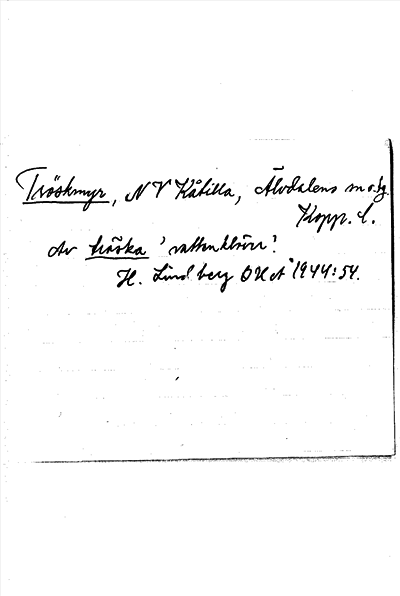 Tröskmyr, NV Kåtilla, Älvdalens m o. bg
Kopp. l.
Av tröska 'vattenklöver'.
H. Lindberg OHÅ 1944:54.